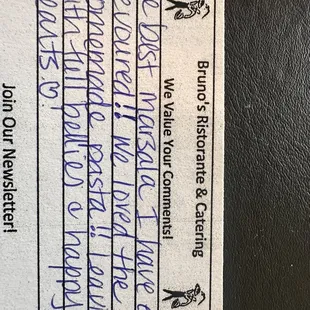 Bruno's Ristorante & Catering
We Value Your Comments!
best Marsala I have
We loved the
homemade pasta!!
full bellies & happy
♡!
Join Our Newsletter!